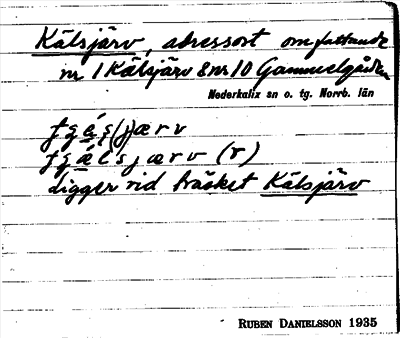 Kälsjärv, adressort omfattande
nr 1 Kälsjärv & nr 10 Gammelgården
Nederkalix sn o. tg. Norrb. län
(r)
ligger vid träsket Kälsjärv
RUBEN DANIELSSON 1935